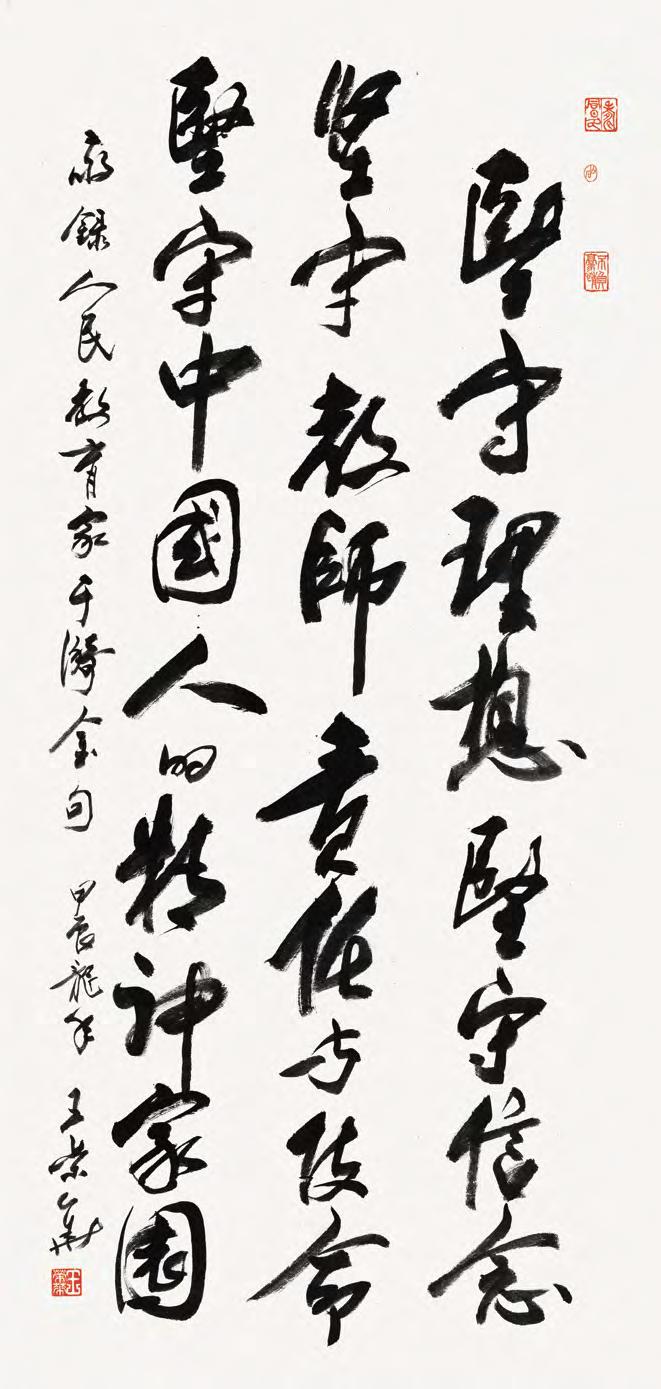 堅守理想堅守信念
坚守教師責任与使命
堅守中國人的精神家園
敬録人民教育家于漪金句 甲辰龍年 王荣華